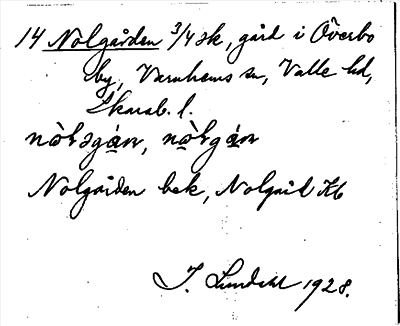 14 Nolgården 3/4 sk, gård i Överbo
by, Varnhems sn, Valle hd,
Skarab. l.
Nolgården bek, Nolgård Kb
I. Lundahl 1928.